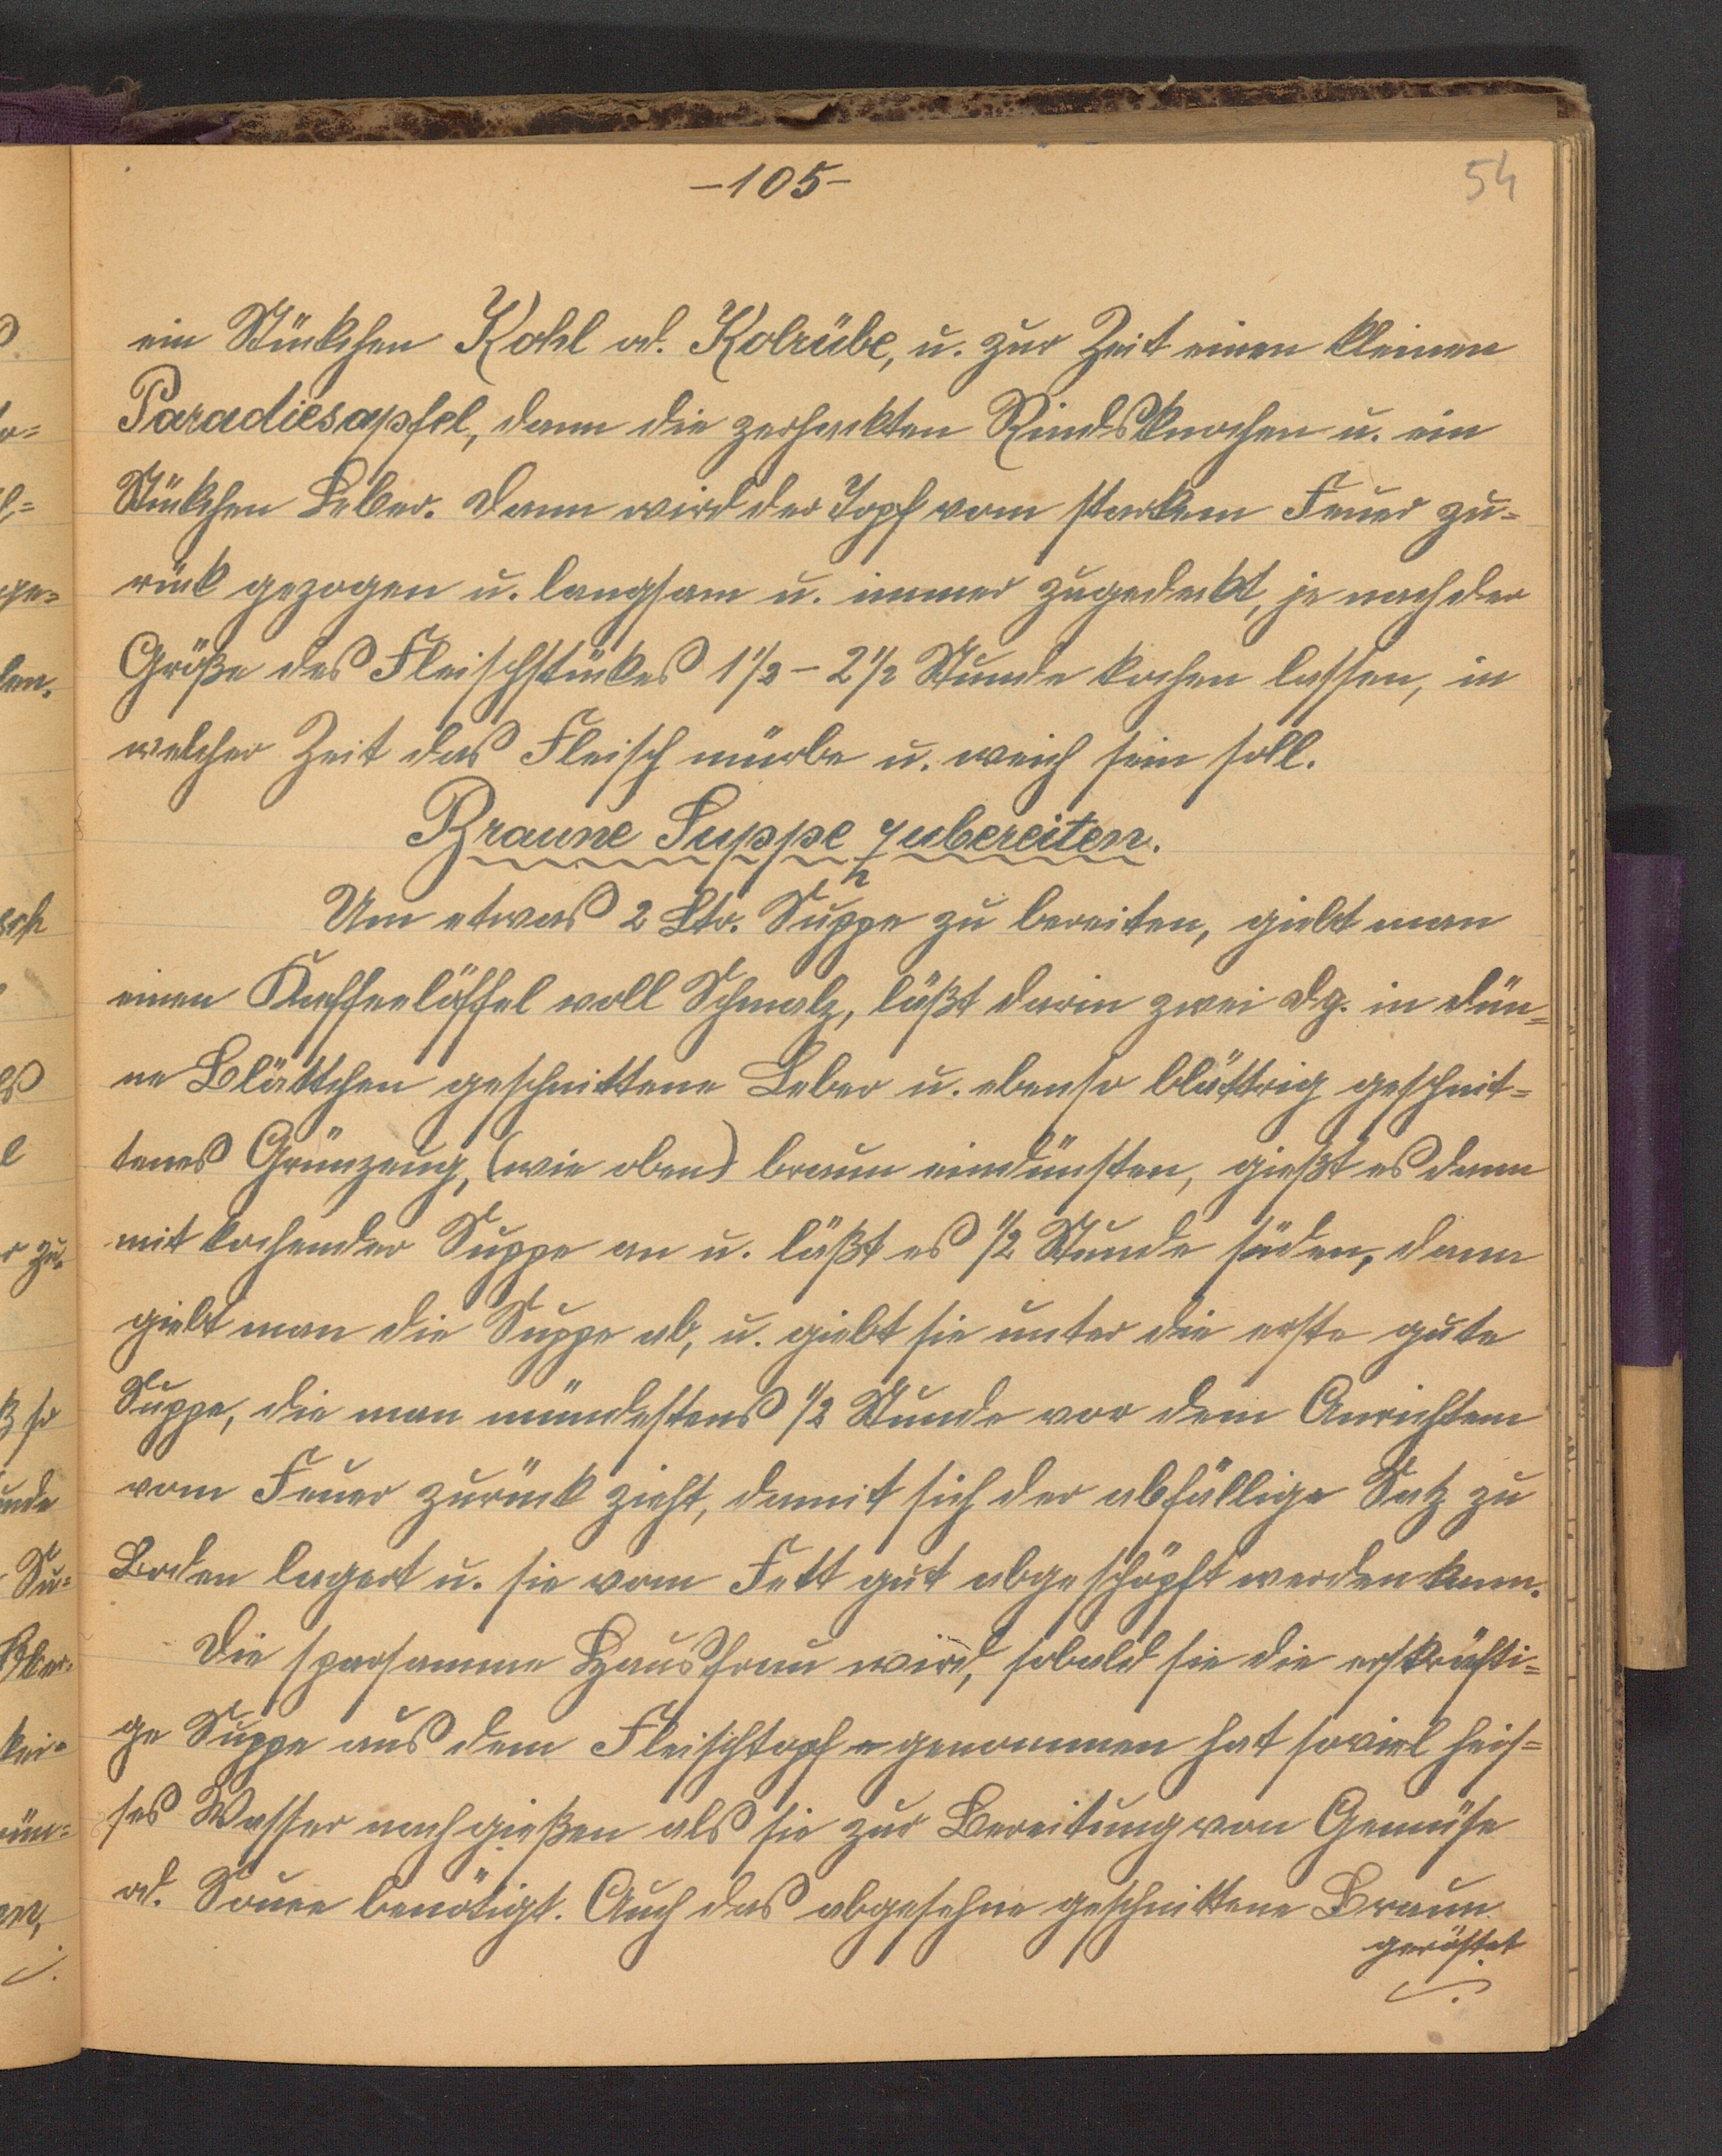 -105-
54
ein Stückchen Kohl od. Kolrübe, u. zur Zeit einen kleinen
Paradiesapfel, dann die zerhackten Rindsknochen u. ein
Stückchen Leber. Dann wird der Topf vom starkem Feuer zu=
rück gezogen u. langsam u. immer zugedeckt, je nach der
Größe des Fleischstückes 1 1/2 - 2 1/2 Stunde kochen lassen, in
welcher Zeit das Fleisch mürbe u. weich sein soll.
Braune Suppe zubereiten.
Um etwas 2 Ltr. Suppe zu bereiten, giebt man
einen Kaffeelöffel voll Schmalz, läßt darin zwei dg. in dün=
ne Blättchen geschnittene Leber u. ebenso blättrig geschnit=
tenes Grünzeug, (wie oben) braun eindünsten, gießt es dann
mit kochender Suppe an u. läßt es 1/2 Stunde süden, dann
giebt man die Suppe ab, u. giebt sie unter die erste gute
Suppe, die man mündestens 1/2 Stunde vor dem Anrichtem
vom Feuer zurück zieht, damit sich der abfällige Satz zu
Boden lagert u. sie vom Fett gut abgeschöpft werden kann.
Die sparsamme Hausfrau wird, sobald sie die erskräfti=
ge Suppe aus dem Fleischtopf genommen hat soviel heis=
ses Wasser nachgießen als sie zur Bereitung von Gemüse
od. Souce benötigt. Auch das abgesehne geschnittene Braun
geröstet